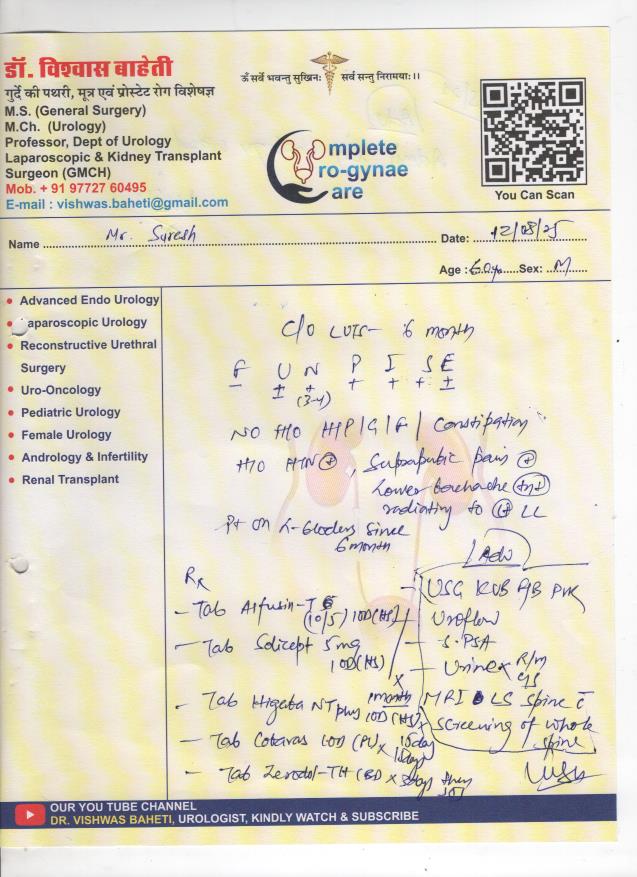 डॉ. विश्वास बाहेती
गुर्दे की पथरी, मूत्र एवं प्रोस्टेट रोग विशेषज्ञ
M.S. (General Surgery)
M.Ch. (Urology)
Professor, Dept of Urology
Laparoscopic & Kidney Transplant
Surgeon (GMCH)
Mob. + 91 97727 60495
E-mail : vishwas.baheti@gmail.com
ॐ सर्वे भवन्तु सुखिनः सर्वे सन्तु निरामयाः।।
Complete
Uro-gynae
Care
You Can Scan
Name Mr. Suresh Date: 12/08/25
Age : 60y Sex: M
Advanced Endo Urology
Laparoscopic Urology
Reconstructive Urethral
Surgery
Uro-Oncology
Pediatric Urology
Female Urology
Andrology & Infertility
Renal Transplant
C/O LUTS - 6 month
F U N P I S E
- ± + + + + ±
(3-4)
NO H/O H/P/G/F / Constipation
H/O HTN (+), Suprapubic pain (+)
Lower backache
radiating to LL
Pt on α-blockers since
6 month
Rx
- Tab Alfusin-T
(10/5) 1OD (HS)
- Tab Solicept 5mg
1OD (HS)
x
1 month
- Tab NT plus 1OD (HS) x 15 day
- Tab 1OD (PU) x 15 days
- Tab Zerodol-TH (BD) x 3 days then
Adv
- USG KUB P/B PVR
Uroflow
- S. PSA
- Urine R/M
C/S
MRI LS Spine c̄
screening of whole
spine
OUR YOU TUBE CHANNEL
DR. VISHWAS BAHETI, UROLOGIST, KINDLY WATCH & SUBSCRIBE